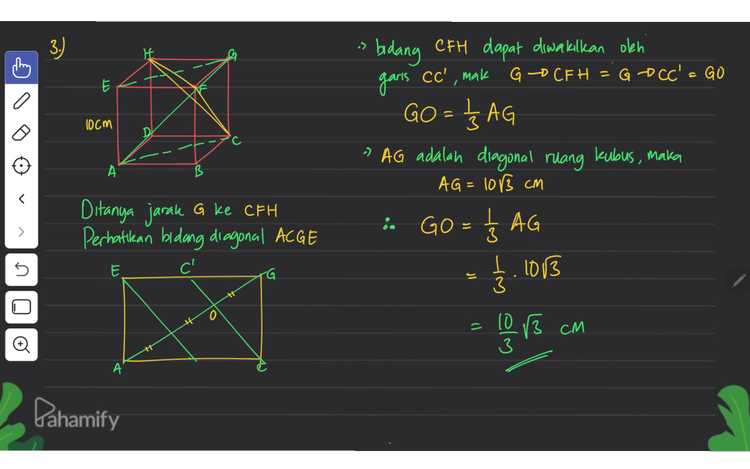 3.)
H
G
E
F
10cm
D
C
A
B
Ditanya jarak G ke CFH
Perhatikan bidang diagonal ACGE
E
C'
G
O
A
C
bidang CFH dapat diwakilkan oleh
garis CC', mak G → CFH = G → CC' = GO
GO = 1/3 AG
AG adalah diagonal ruang kubus, maka
AG = 10√3 cm
∴ GO = 1/3 AG
= 1/3 . 10√3
= 10/3 √3 cm
Pahamify